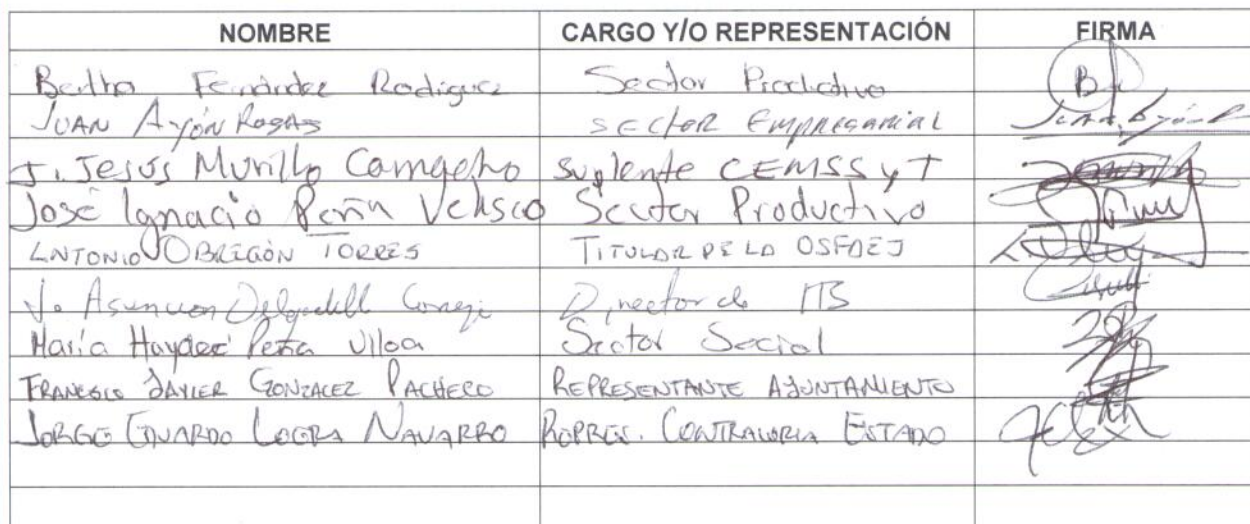 NOMBRE CARGO Y/O REPRESENTACIÓN FIRMA
Bertha Fernández Rodríguez Sector Productivo B
JUAN Ayón Rosas SECTOR EMPRESARIAL Juan Ayón R
J. Jesús Murillo Camacho Suplente CEMSSyT
José Ignacio Peña Velasco Sector Productivo
ANTONIO OBREGÓN TORRES TITULAR DE LA OSFDEJ
J. Asunción Director de ITS
María Haydee Peña Ulloa Sector Social
FRANCISCO JAVIER GONZALEZ PACHECO REPRESENTANTE AYUNTAMIENTO
JORGE EDUARDO NAVARRO REPRES. CONTRALORIA ESTADO